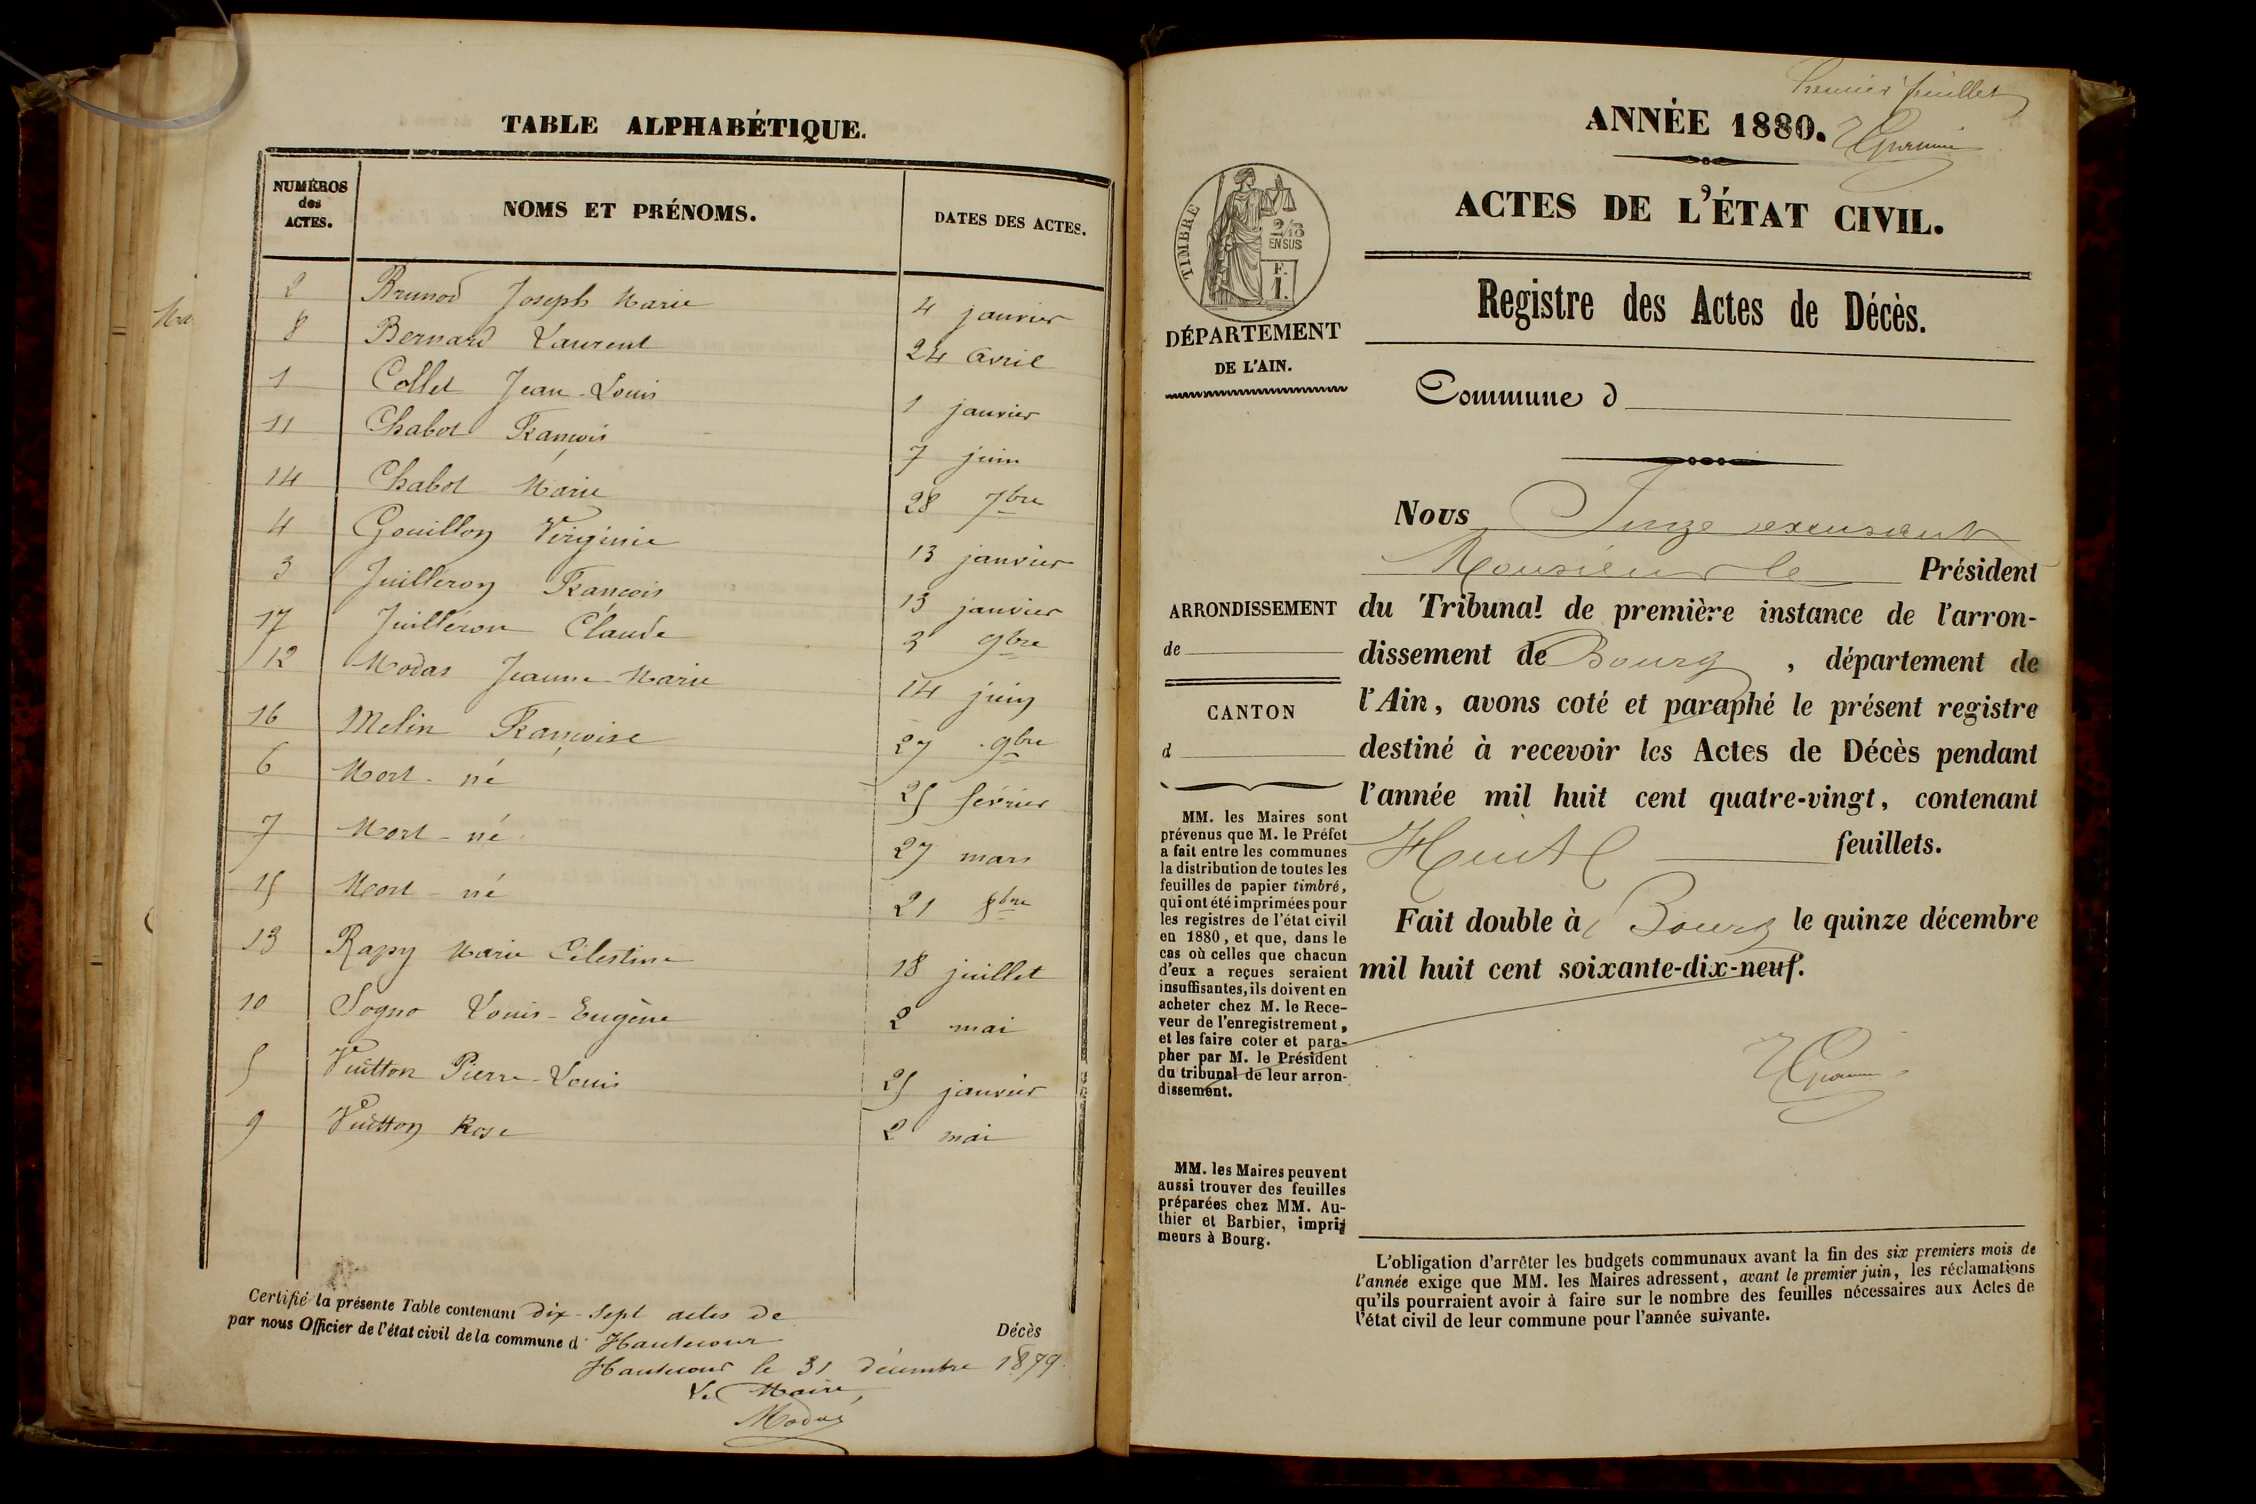 TABLE ALPHABÉTIQUE.
NUMÉROS des ACTES. NOMS ET PRÉNOMS. DATES DES ACTES.
2 Brunod Joseph Marie 4 janvier
8 Bernard Laurent 24 avril
1 Collet Jean-Louis 1 janvier
11 Chabot François 7 juin
14 Chabot Marie 28 7bre
4 Gouillon Virginie 13 janvier
3 Juilleron François 13 janvier
17 Juilleron Claude 3 9bre
12 Modas Jeanne-Marie 14 juin
16 Melin Françoise 27 9bre
6 Mort-né 25 février
7 Mort-né 27 mars
15 Mort-né 21 8bre
13 Rapy Marie Célestine 18 juillet
10 Sogno Louis-Eugène 2 mai
5 Vuitton Pierre-Louis 25 janvier
9 Vuitton Rose 2 mai
Certifié la présente Table contenant dix-sept actes de Décès
par nous Officier de l'état civil de la commune d' Hautecour
Hautecour le 31 décembre 1879.
Le Maire,
Modas
Premier feuillet
ANNÉE 1880.
ACTES DE L'ÉTAT CIVIL.
Registre des Actes de Décès.
TIMBRE
2/10
EN SUS
F.
1.
DÉPARTEMENT
DE L'AIN.
Commune d
Nous Juge excusant
Monsieur le Président
du Tribunal de première instance de l'arron-
dissement de Bourg, département de
l'Ain, avons coté et paraphé le présent registre
destiné à recevoir les Actes de Décès pendant
l'année mil huit cent quatre-vingt, contenant
Huit feuillets.
Fait double à Bourg le quinze décembre
mil huit cent soixante-dix-neuf.
ARRONDISSEMENT
de
CANTON
d
MM. les Maires sont
prévenus que M. le Préfet
a fait entre les communes
la distribution de toutes les
feuilles de papier timbré,
qui ont été imprimées pour
les registres de l'état civil
en 1880, et que, dans le
cas où celles que chacun
d'eux a reçues seraient
insuffisantes, ils doivent en
acheter chez M. le Rece-
veur de l'enregistrement,
et les faire coter et para-
pher par M. le Président
du tribunal de leur arron-
dissement.
MM. les Maires peuvent
aussi trouver des feuilles
préparées chez MM. Au-
thier et Barbier, impri-
meurs à Bourg.
L'obligation d'arrêter les budgets communaux avant la fin des six premiers mois de
l'année exige que MM. les Maires adressent, avant le premier juin, les réclamations
qu'ils pourraient avoir à faire sur le nombre des feuilles nécessaires aux Actes de
l'état civil de leur commune pour l'année suivante.